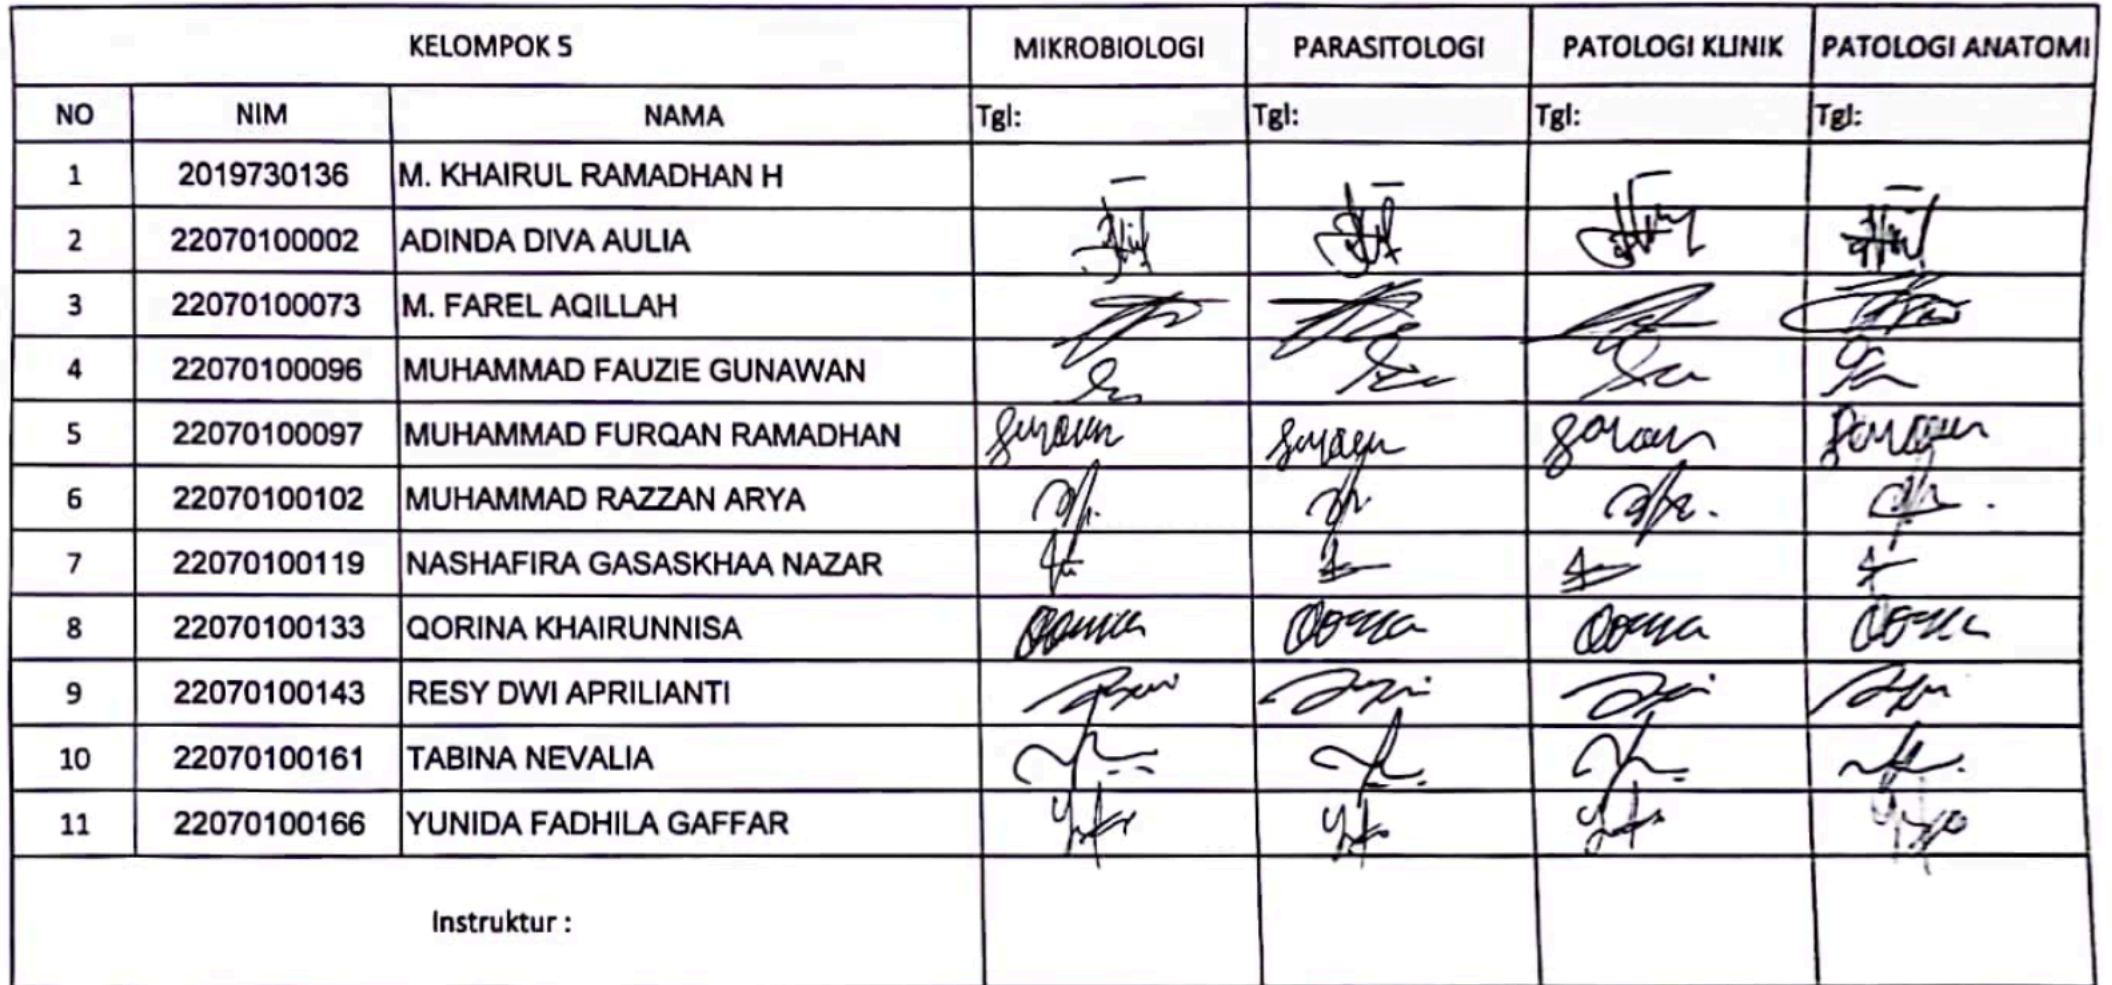 KELOMPOK 5 MIKROBIOLOGI PARASITOLOGI PATOLOGI KLINIK PATOLOGI ANATOMI
NO NIM NAMA Tgl: Tgl: Tgl: Tgl:
1 2019730136 M. KHAIRUL RAMADHAN H – – – –
2 22070100002 ADINDA DIVA AULIA
3 22070100073 M. FAREL AQILLAH
4 22070100096 MUHAMMAD FAUZIE GUNAWAN
5 22070100097 MUHAMMAD FURQAN RAMADHAN
6 22070100102 MUHAMMAD RAZZAN ARYA
7 22070100119 NASHAFIRA GASASKHAA NAZAR
8 22070100133 QORINA KHAIRUNNISA
9 22070100143 RESY DWI APRILIANTI
10 22070100161 TABINA NEVALIA
11 22070100166 YUNIDA FADHILA GAFFAR
Instruktur :